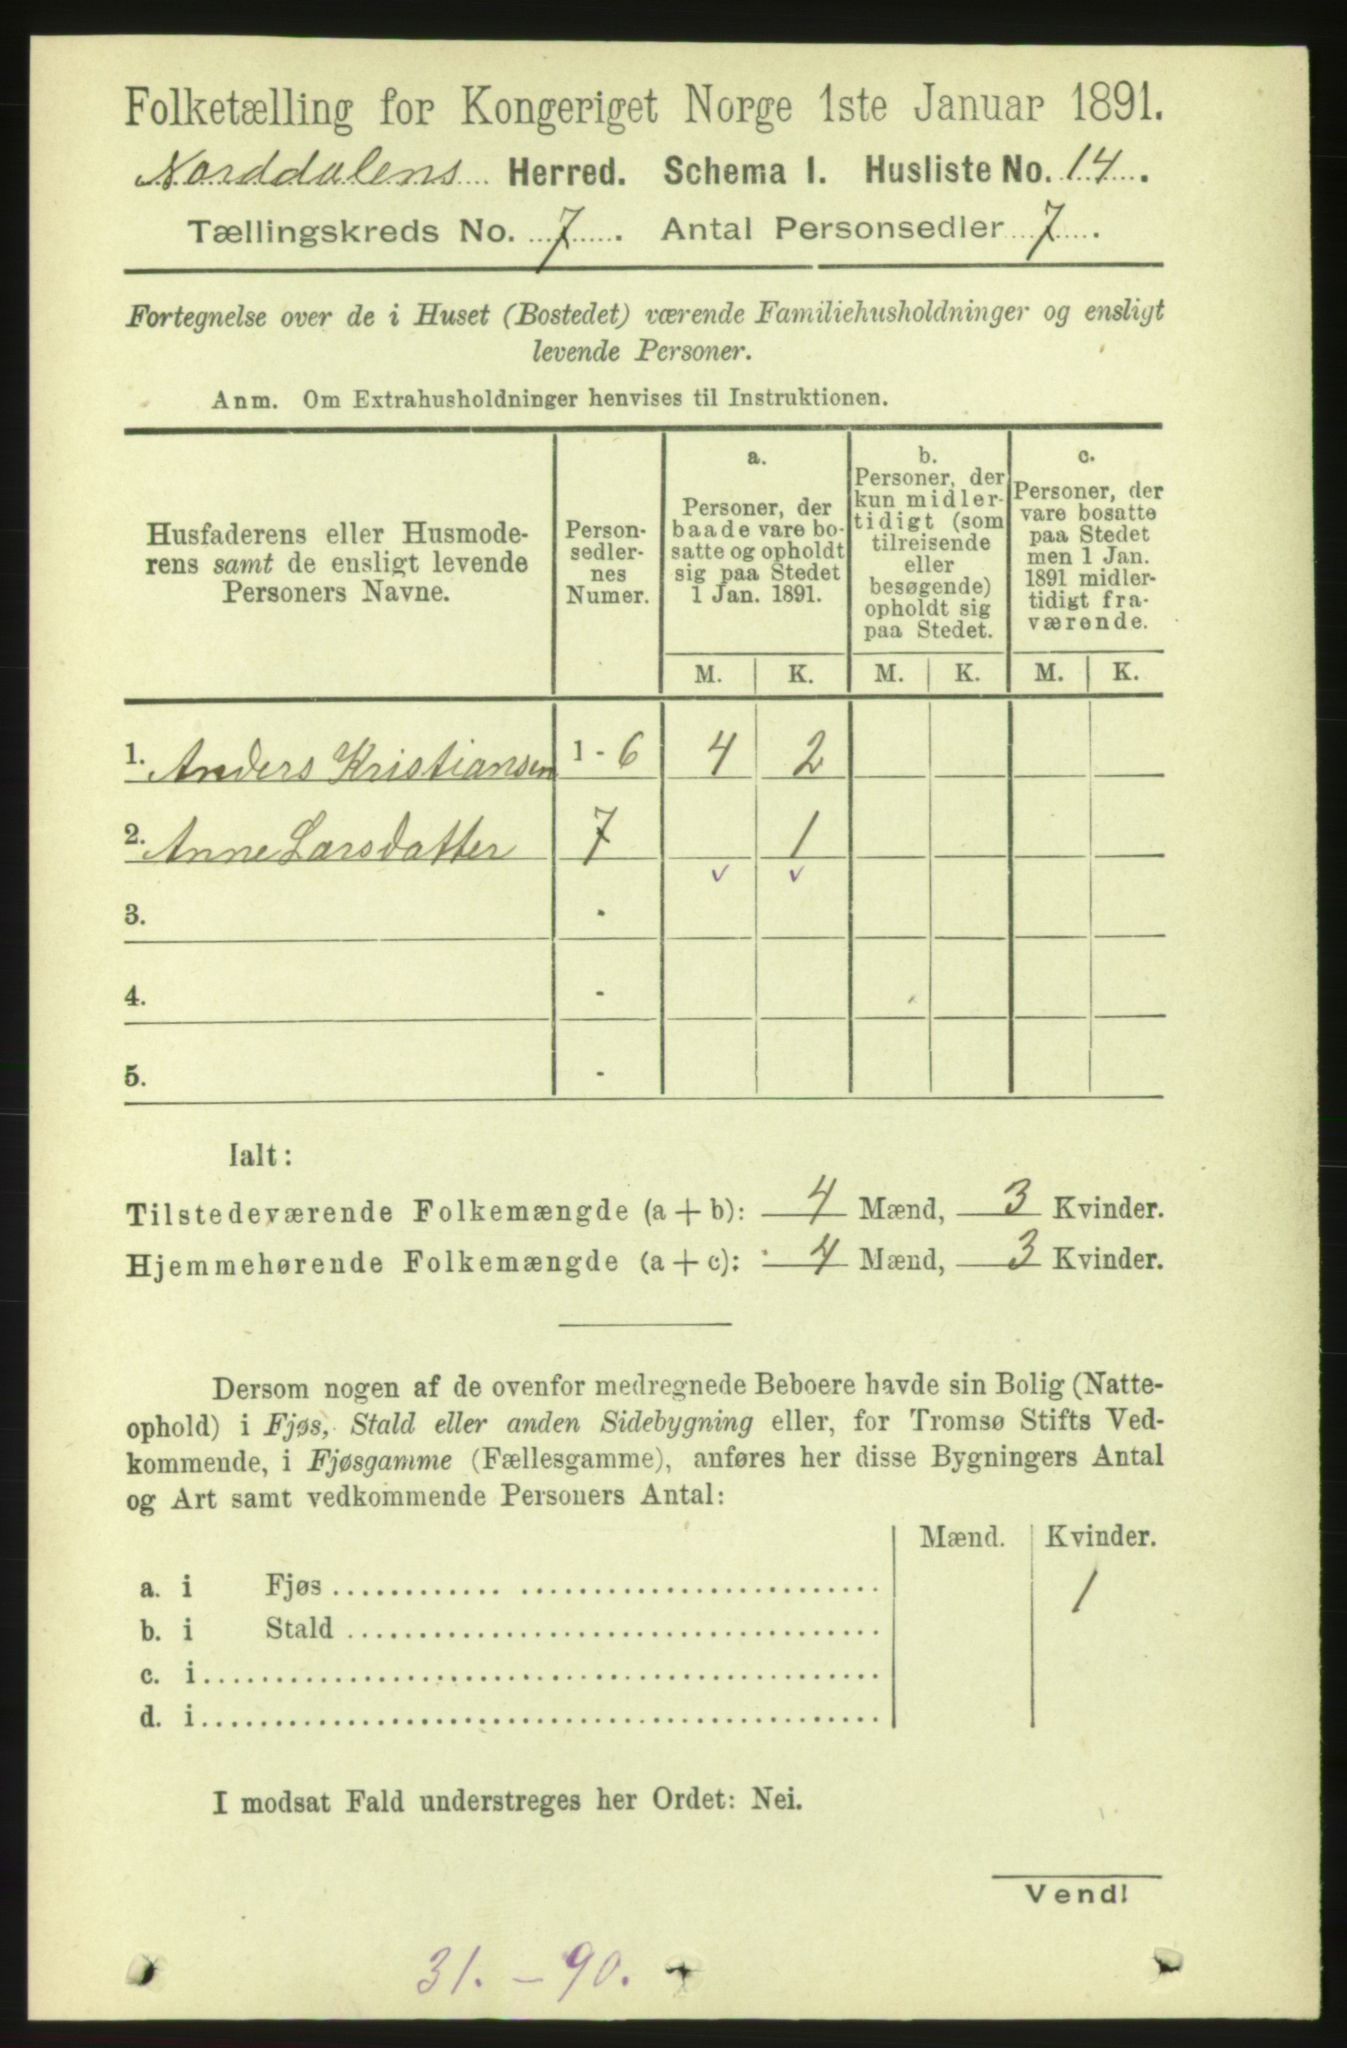 Folketælling for Kongeriget Norge 1ste Januar 1891.
Norddalens Herred. Schema I. Husliste No. 14.
Tællingskreds No. 7. Antal Personsedler 7.
Fortegnelse over de i Huset (Bostedet) værende Familiehusholdninger og ensligt
levende Personer.
Anm. Om Extrahusholdninger henvises til Instruktionen.
Husfaderens eller Husmode-
rens samt de ensligt levende
Personers Navne.
Person-
sedler-
nes
Numer.
a.
Personer, der
baade vare bo-
satte og opholdt
sig paa Stedet
1 Jan. 1891.
b.
Personer, der
kun midler-
tidigt (som
tilreisende
eller
besøgende)
opholdt sig
paa Stedet.
c.
Personer, der
vare bosatte
paa Stedet
men 1 Jan.
1891 midler-
tidigt fra-
værende.
M. K. M. K. M. K.
1. Anders Kristiansen 1 - 6 4 2
2. Anne Larsdatter 7 1
3. -
4. -
5. -
Ialt:
Tilstedeværende Folkemængde (a + b): 4 Mænd, 3 Kvinder.
Hjemmehørende Folkemængde (a + c): 4 Mænd, 3 Kvinder.
Dersom nogen af de ovenfor medregnede Beboere havde sin Bolig (Natte-
ophold) i Fjøs, Stald eller anden Sidebygning eller, for Tromsø Stifts Ved-
kommende, i Fjøsgamme (Fællesgamme), anføres her disse Bygningers Antal
og Art samt vedkommende Personers Antal:
Mænd. Kvinder.
a. i Fjøs 1
b. i Stald
c. i
d. i
I modsat Fald understreges her Ordet: Nei.
Vend!
31. - 90.